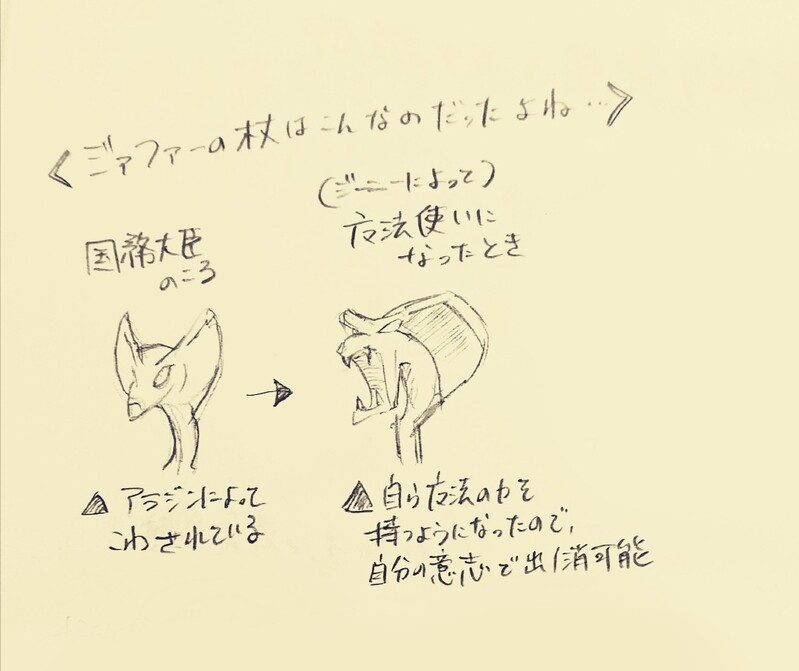 <ジァファーの杖はこんなのだったよね…>
国務大臣
のころ
(ジーニーによって)
魔法使いに
なったとき
▲ アラジンによって
こわされている
▲ 自ら魔法の力を
持つようになったので、
自分の意志で出/消可能